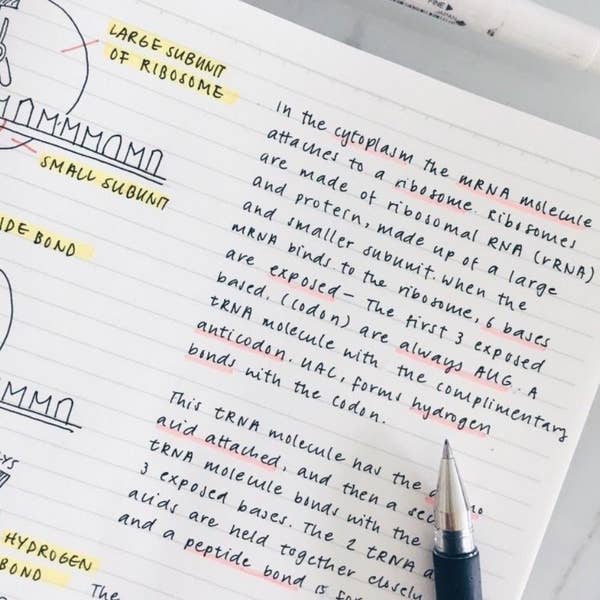 FINE
JAPAN
LARGE SUBUNIT
OF RIBOSOME
SMALL SUBUNIT
IDE BOND
HYDROGEN
BOND
The
In the cytoplasm the mRNA molecule
attaches to a ribosome. Ribosomes
are made of ribosomal RNA (rRNA)
and protein, made up of a large
and smaller subunit. When the
mRNA binds to the ribosome, 6 bases
are exposed – The first 3 exposed
based, (codon) are always AUG. A
tRNA molecule with the complimentary
anticodon, UAC, forms hydrogen
bonds with the codon.
This tRNA molecule has the
acid attached, and then a
tRNA molecule bonds with the
3 exposed bases. The 2 tRNA
acids are held together closely
and a peptide bond is